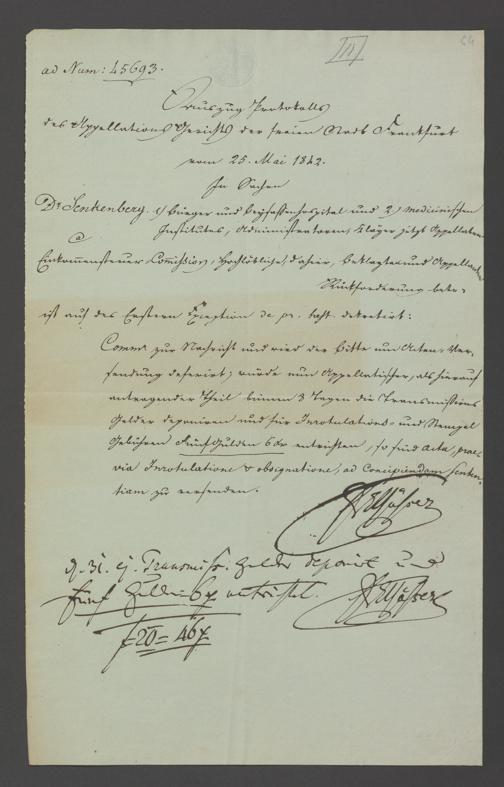 64
III
ad Num: 45693.
Auszug Protokolls
des Appellations Gerichts der freien Stadt Frankfurt
vom 25. Mai 1842.
In Sachen
Dr Senkenberg. 1) Bürger und Beysassenhospital und 2) medicinischen
Institutes, Administratoren, Kläger jetzt Appellaten
Ca
Einkommensteuer Commission, Hochlöbliche, dahier, Beklagte und Appellantin
Rückforderung betr:
ist auf des Erstern Exception de pr. hest. dekretirt:
Comm. zur Nachricht und wird der Bitte um Acten-Ver-
sendung deferirt; würde nun Appellatischer, als hierauf
antragender Theil binnen 3 Tagen die Transmissions
Gelder deponiren und für Inrotulations und Stempel
Gebühren Fünf Gulden 6 xr entrichten, so sind Acta, prae-
via Inrotulatione & obsignatione, ad Concipiendam Senten-
tiam zu versenden.
d. 31. ej. Transmiss. Gelder deponirt und
fünf Gulden 6 xr entrichtet.
f 20 = 46 xr